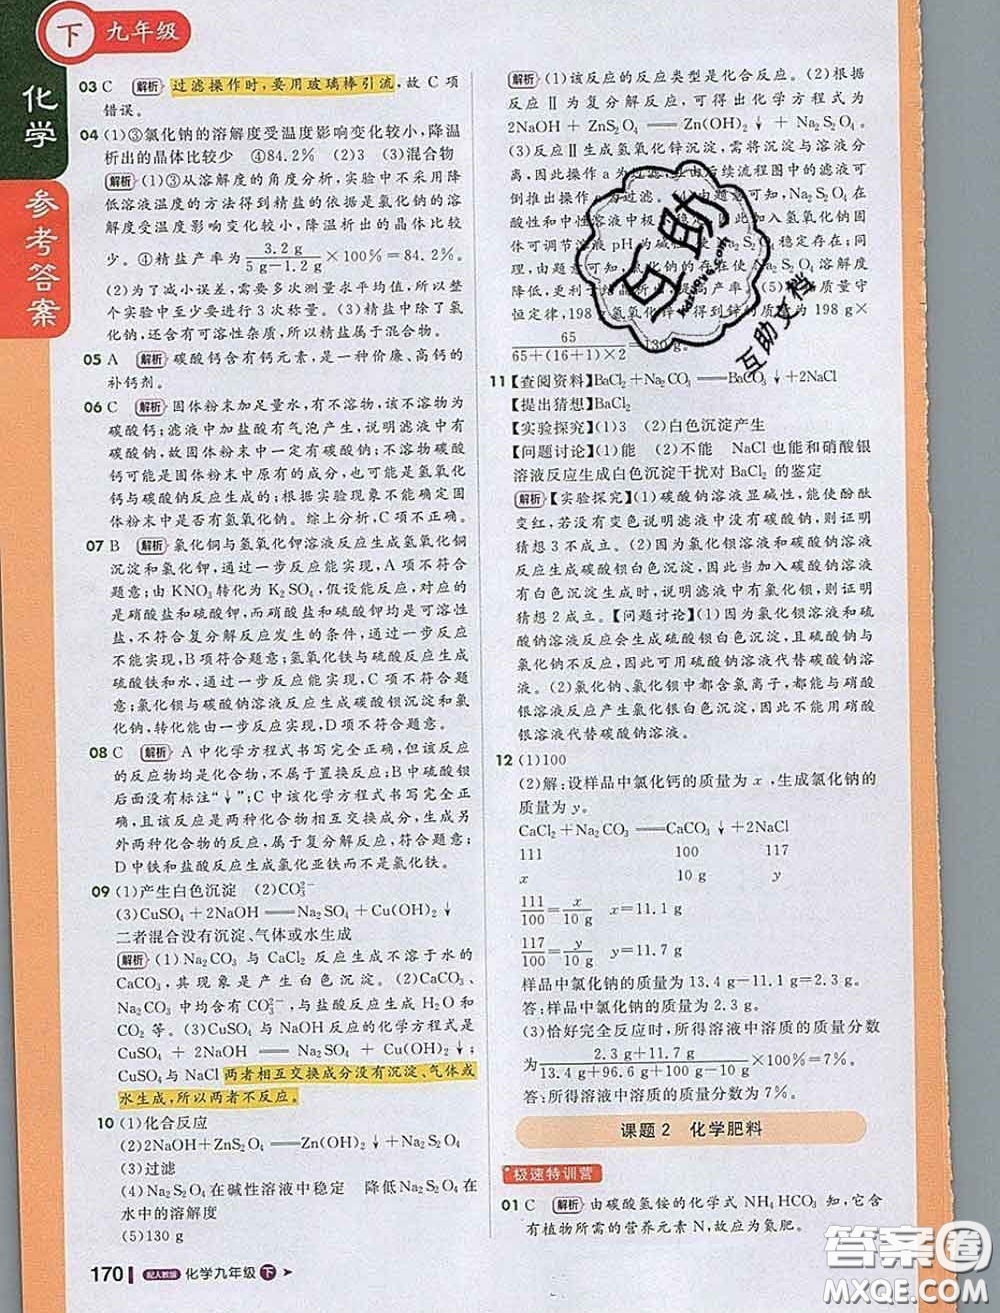 下 九年级
化学
参考答案
03 C 解析 过滤操作时,要用玻璃棒引流,故 C 项
错误。
04 (1)③氯化钠的溶解度受温度影响变化较小,降温
析出的晶体比较少 ④84.2% (2)3 (3)混合物
解析 (1)③从溶解度的角度分析,实验中不采用降
低溶液温度的方法得到精盐的依据是氯化钠的溶
解度受温度影响变化较小,降温析出的晶体比较
少。④精盐产率为 3.2 g/(5 g-1.2 g) ×100%=84.2%。
(2)为了减小误差,需要多次测量求平均值,所以整
个实验中至少要进行3次称量。(3)精盐中除了氯
化钠,还含有可溶性杂质,所以精盐属于混合物。
05 A 解析 碳酸钙含有钙元素,是一种价廉、高钙的
补钙剂。
06 C 解析 固体粉末加足量水,有不溶物,该不溶物为
碳酸钙;滤液中加盐酸有气泡产生,说明滤液中有碳
酸钠,故固体粉末中一定有碳酸钠。不溶物碳酸
钙可能是固体粉末中原有的成分,也可能是氢氧化
钙与碳酸钠反应生成的;根据实验现象不能确定固
体粉末中是否有氢氧化钠。综上分析,C项不正确。
07 B 解析 氯化铜与氢氧化钾溶液反应生成氢氧化铜
沉淀和氯化钾,通过一步反应能实现,A项不符合
题意;由 KNO₃ 转化为 K₂SO₄,假设反应,对应的
是硝酸盐和硫酸钾,而硝酸盐和硫酸钾均是可溶性
盐,不符合复分解反应发生的条件,通过一步反应
不能实现,B项符合题意;氢氧化铁与硫酸反应生成
硫酸铁和水,通过一步反应能实现,C项不符合题
意;氯化钡与硫酸钠溶液反应生成硫酸钡沉淀和氯化
钠,转化能由一步反应实现,D项不符合题意。
08 C 解析 A中化学方程式书写完全正确,但该反应
的反应物均是化合物,不属于置换反应;B中硫酸钡
后面没有标注“↓”;C中该化学方程式书写完全正
确,且该反应是两种化合物相互交换成分,生成另
外两种化合物的反应,属于复分解反应,符合题意;
D中铁和盐酸反应生成氯化亚铁而不是氯化铁。
09 (1)产生白色沉淀 (2)CO₃²⁻
(3)CuSO₄+2NaOH══Na₂SO₄+Cu(OH)₂↓
二者混合没有沉淀、气体或水生成
解析 (1)Na₂CO₃ 与 CaCl₂ 反应生成不溶于水的
CaCO₃,其现象是产生白色沉淀。(2)CaCO₃、
Na₂CO₃ 中均含有 CO₃²⁻,与盐酸反应生成 H₂O 和
CO₂ 等。(3)CuSO₄ 与 NaOH 的反应的化学方程式是
CuSO₄ + 2NaOH ══ Na₂SO₄ + Cu(OH)₂↓;
CuSO₄与 NaCl 两者相互交换成分没有沉淀、气体或
水生成,所以两者不反应。
10 (1)化合反应
(2)2NaOH+ZnS₂O₄══Zn(OH)₂↓+Na₂S₂O₄
(3)过滤
(4)Na₂S₂O₄ 在碱性溶液中稳定 降低 Na₂S₂O₄ 在
水中的溶解度
(5)130 g
解析 (1)该反应的反应类型是化合反应。(2)根据
反应Ⅱ为复分解反应,可写出化学方程式为
2NaOH + ZnS₂O₄ ══ Zn(OH)₂↓ + Na₂S₂O₄。
(3)反应Ⅱ生成氢氧化锌沉淀,需将沉淀与溶液分
离,因此操作a为过滤,且由后续流程图中的滤液可
倒推出操作
酸性和中性溶液中 因此加入氢氧化钠固
体可调节溶液 pH 为碱 O₄ 稳定存在;同
时加入 Na₂S₂O₄ 溶解
度降低,更利于结晶析出 提高产率。(5)由质量守
恒定律,198 g 氢氧化锌中锌元素的质量为 198 g×
65/(65+(16+1)×2)=130 g。
11【查阅资料】BaCl₂+Na₂CO₃══BaCO₃↓+2NaCl
【提出猜想】BaCl₂
【实验探究】(1)3 (2)白色沉淀产生
【问题讨论】(1)能 (2)不能 NaCl 也能和硝酸银
溶液反应生成白色沉淀干扰对 BaCl₂ 的鉴定
解析【实验探究】(1)碳酸钠溶液显碱性,能使酚酞
变红,若没有变色说明滤液中没有碳酸钠,则证明
猜想3不成立。(2)因为氯化钡溶液和碳酸钠溶液
反应生成碳酸钡白色沉淀,因此当加入碳酸钠溶液
有白色沉淀生成,说明滤液中含有氯化钡,则证明
猜想2成立。【问题讨论】(1)因为氯化钡溶液和硫
酸钠溶液反应会生成硫酸钡白色沉淀,而硫酸钠与
氯化钠不反应,因此可用硫酸钠溶液代替碳酸钠溶
液。(2)氯化钠、氯化钡中都含氯离子,都能与硝酸
银溶液反应产生氯化银白色沉淀,因此不能用硝酸
银溶液代替碳酸钠溶液。
12 (1)100
(2)解:设样品中氯化钙的质量为 x,生成氯化钠的
质量为 y。
CaCl₂+Na₂CO₃══CaCO₃↓+2NaCl
111 100 117
x 10 g y
111/100=x/10 g x=11.1 g
117/100=y/10 g y=11.7 g
样品中氯化钠的质量为 13.4 g-11.1 g=2.3 g。
答:样品中氯化钠的质量为 2.3 g。
(3)恰好完全反应时,所得溶液中溶质的质量分数
为 (2.3 g+11.7 g)/(13.4 g+96.6 g+100 g-10 g)×100%=7%。
答:所得溶液中溶质的质量分数为 7%。
课题2 化学肥料
极速特训营
01 C 解析 由碳酸氢铵的化学式 NH₄HCO₃ 知,它含
有植物所需的营养元素N,故应为氮肥。
170 配人教版 化学九年级 下
互助
互助文档
答案圈
MXQE.COM